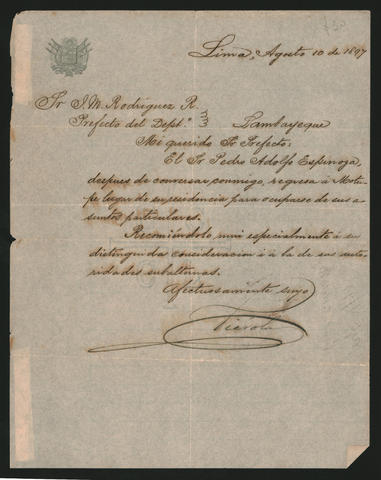 Lima, Agosto 10 de 1897
Sr J. M. Rodriguez R.
Prefecto del Dept.º Lambayeque
Mi querido Sr Prefecto:
El Sr Pedro Adolfo Espinoza,
despues de conversar conmigo, regresa á Motu-
pe lugar de su residencia para ocuparse de sus a-
suntos particulares.
Recomiéndolo mui especialmente á su
distinguida consideracion i á la de sus auto-
ridades subalternas.
Afectuosamente suyo
Piérola